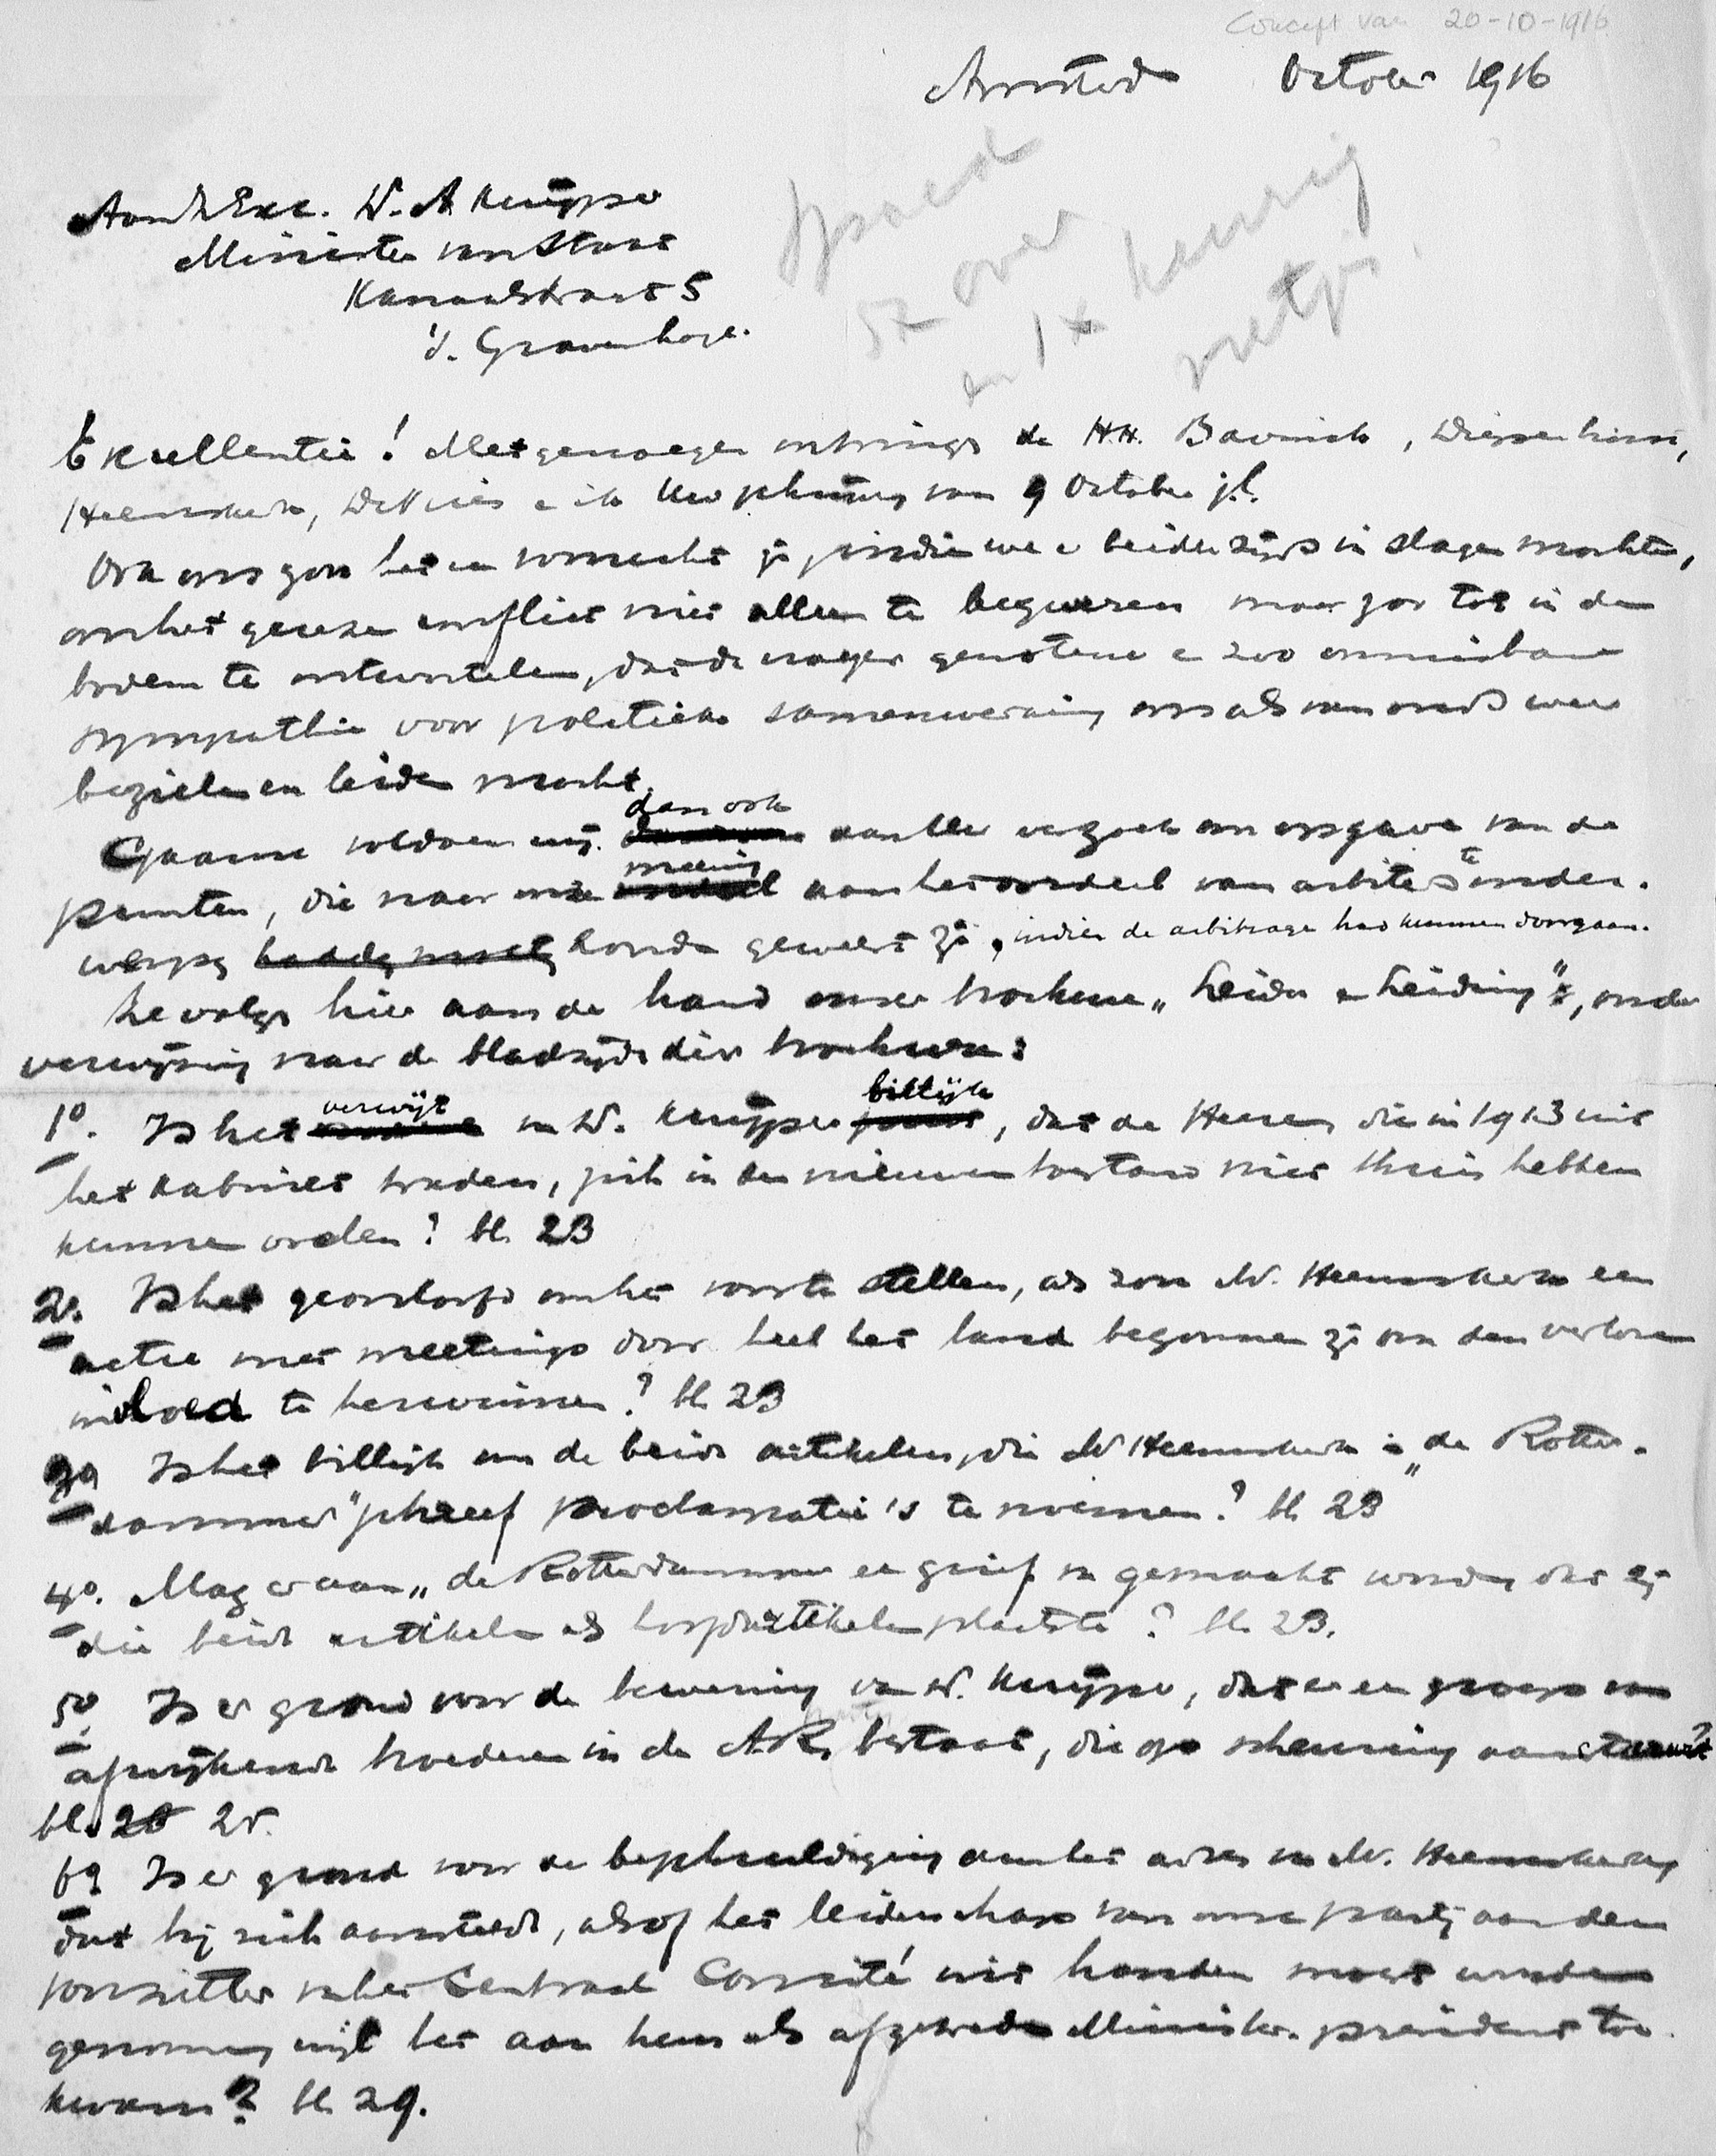 Concept van 20-10-1916
Amsterd October 1916
spoed
5x over
en 1x keurig
netjes.
Aan Z Exc. Dr. A Kuÿper
Minister van Staat
Kanaalstraat 5
's. Gravenhage.
Excellentie! Met genoegen ontvingen de HH. Bavinck, Diepenhorst,
Heemskerk, De Vries e ik Uw schrijven van 9 October j.l.
Ook ons zou het een vreugde zijn indien we e beiderzijds in slagen mochten,
om het gerezen conflict niet alleen te bezweren maar zoo tot in den
bodem te ontwortelen, dat de vroeger genotene e zoo onmisbare
sympathie voor politieke samenwerking ons als van ouds weer
bezielen en leiden mocht.
Gaarne voldoen wij dan ook aan Uw verzoek om opgave van de
punten, die naar onze meening aan het oordeel van arbiters te onder-
werpen zouden geweest zijn, indien de arbitrage had kunnen doorgaan.
Ze volgen hier aan de hand onzer brochure „Leider en Leiding", onder
verwijzing naar de bladzijde dier brochure:
1o. Is het verwijt van Dr. Kuÿper billijk, dat de Heeren die in 1913 uit
het Kabinet traden, zich in den nieuwen toestand niet thuis hebben
kunnen voelen? bl. 23
2o. Is het geoorloofd om het voor te stellen, als zou Mr. Heemskerk een
actie met meetings door heel het land begonnen zijn om den verloren
invloed te herwinnen? bl 23
3o Is het billijk om de beide artikelen, die Mr Heemskerk in „de Rotter-
dammer" schreef proclamatie's te noemen? bl 23
4o. Mag er aan „de Rotterdammer een grief van gemaakt worden dat zij
die beide artikelen als hoofdartikelen plaatste? bl. 23.
5o. Is er grond voor de bewering van Dr. Kuÿper, dat er een groep van
afwijkende broederen in de A.R. partij bestaat, die op scheuring aanstuurt?
bl. 20 25.
6o Is er grond voor de beschuldiging aan het adres van Mr. Heemskerk,
dat hij zich aanstelde, alsof het leiderschap van onze partij aan den
voorzitter van het Centraal Comité uit handen moest worden
genomen wijl het aan hem als afgetreden Minister-president toe-
kwam? bl 29.